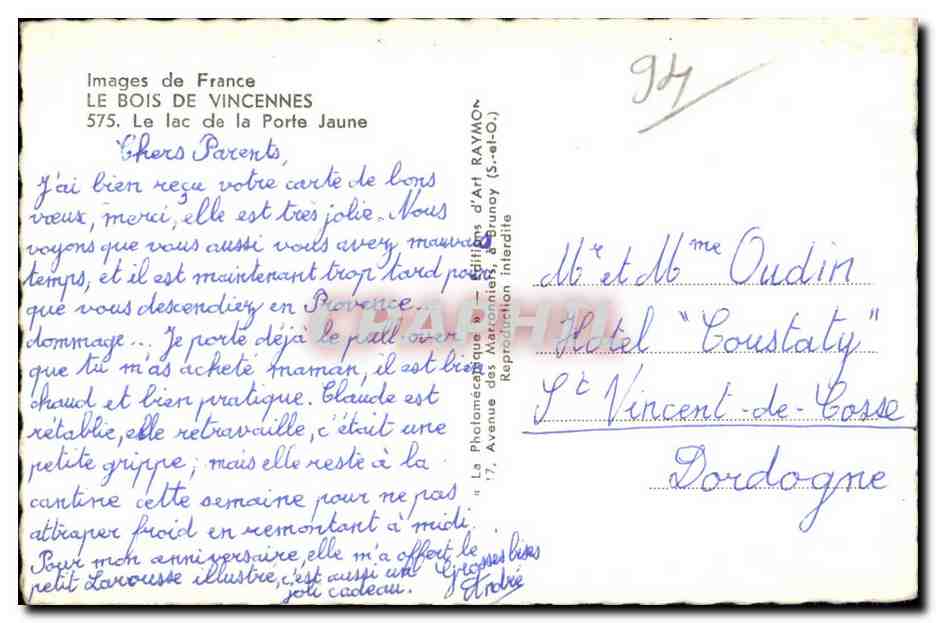 Images de France
LE BOIS DE VINCENNES
575. Le lac de la Porte Jaune
Chers Parents,
J'ai bien reçu votre carte de bons
vœux, merci, elle est très jolie. Nous
voyons que vous aussi vous avez mauvais
temps, et il est maintenant trop tard pour
que vous descendiez en Provence...
dommage... Je porte déjà le pull-over
que tu m'as acheté maman, il est bien
chaud et bien pratique. Claude est
rétablie, elle retravaille, c'était une
petite grippe; mais elle reste à la
cantine cette semaine pour ne pas
attraper froid en remontant à midi.
Pour mon anniversaire, elle m'a offert le
petit Larousse illustré, c'est aussi un
joli cadeau.
Grosses bises
André
« La Photomécanique » — Éditions d'Art RAYMON
17, Avenue des Marronniers, à Brunoy (S.-et-O.)
Reproduction interdite
94
Mr et Mme Oudin
Hôtel "Coustaty"
St Vincent-de-Cosse
Dordogne